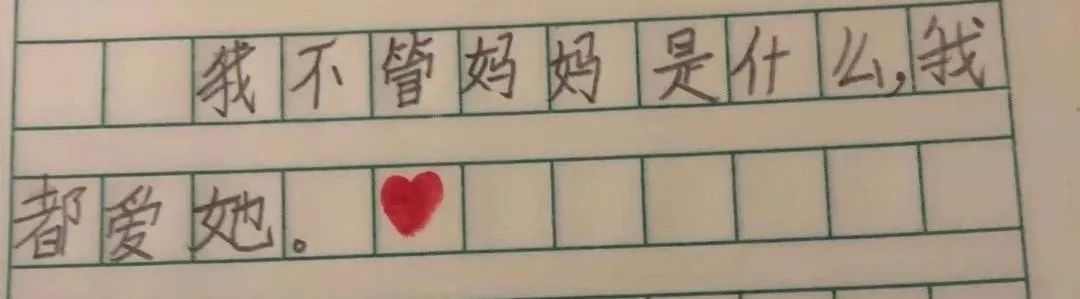 我不管妈妈是什么,我
都爱她。